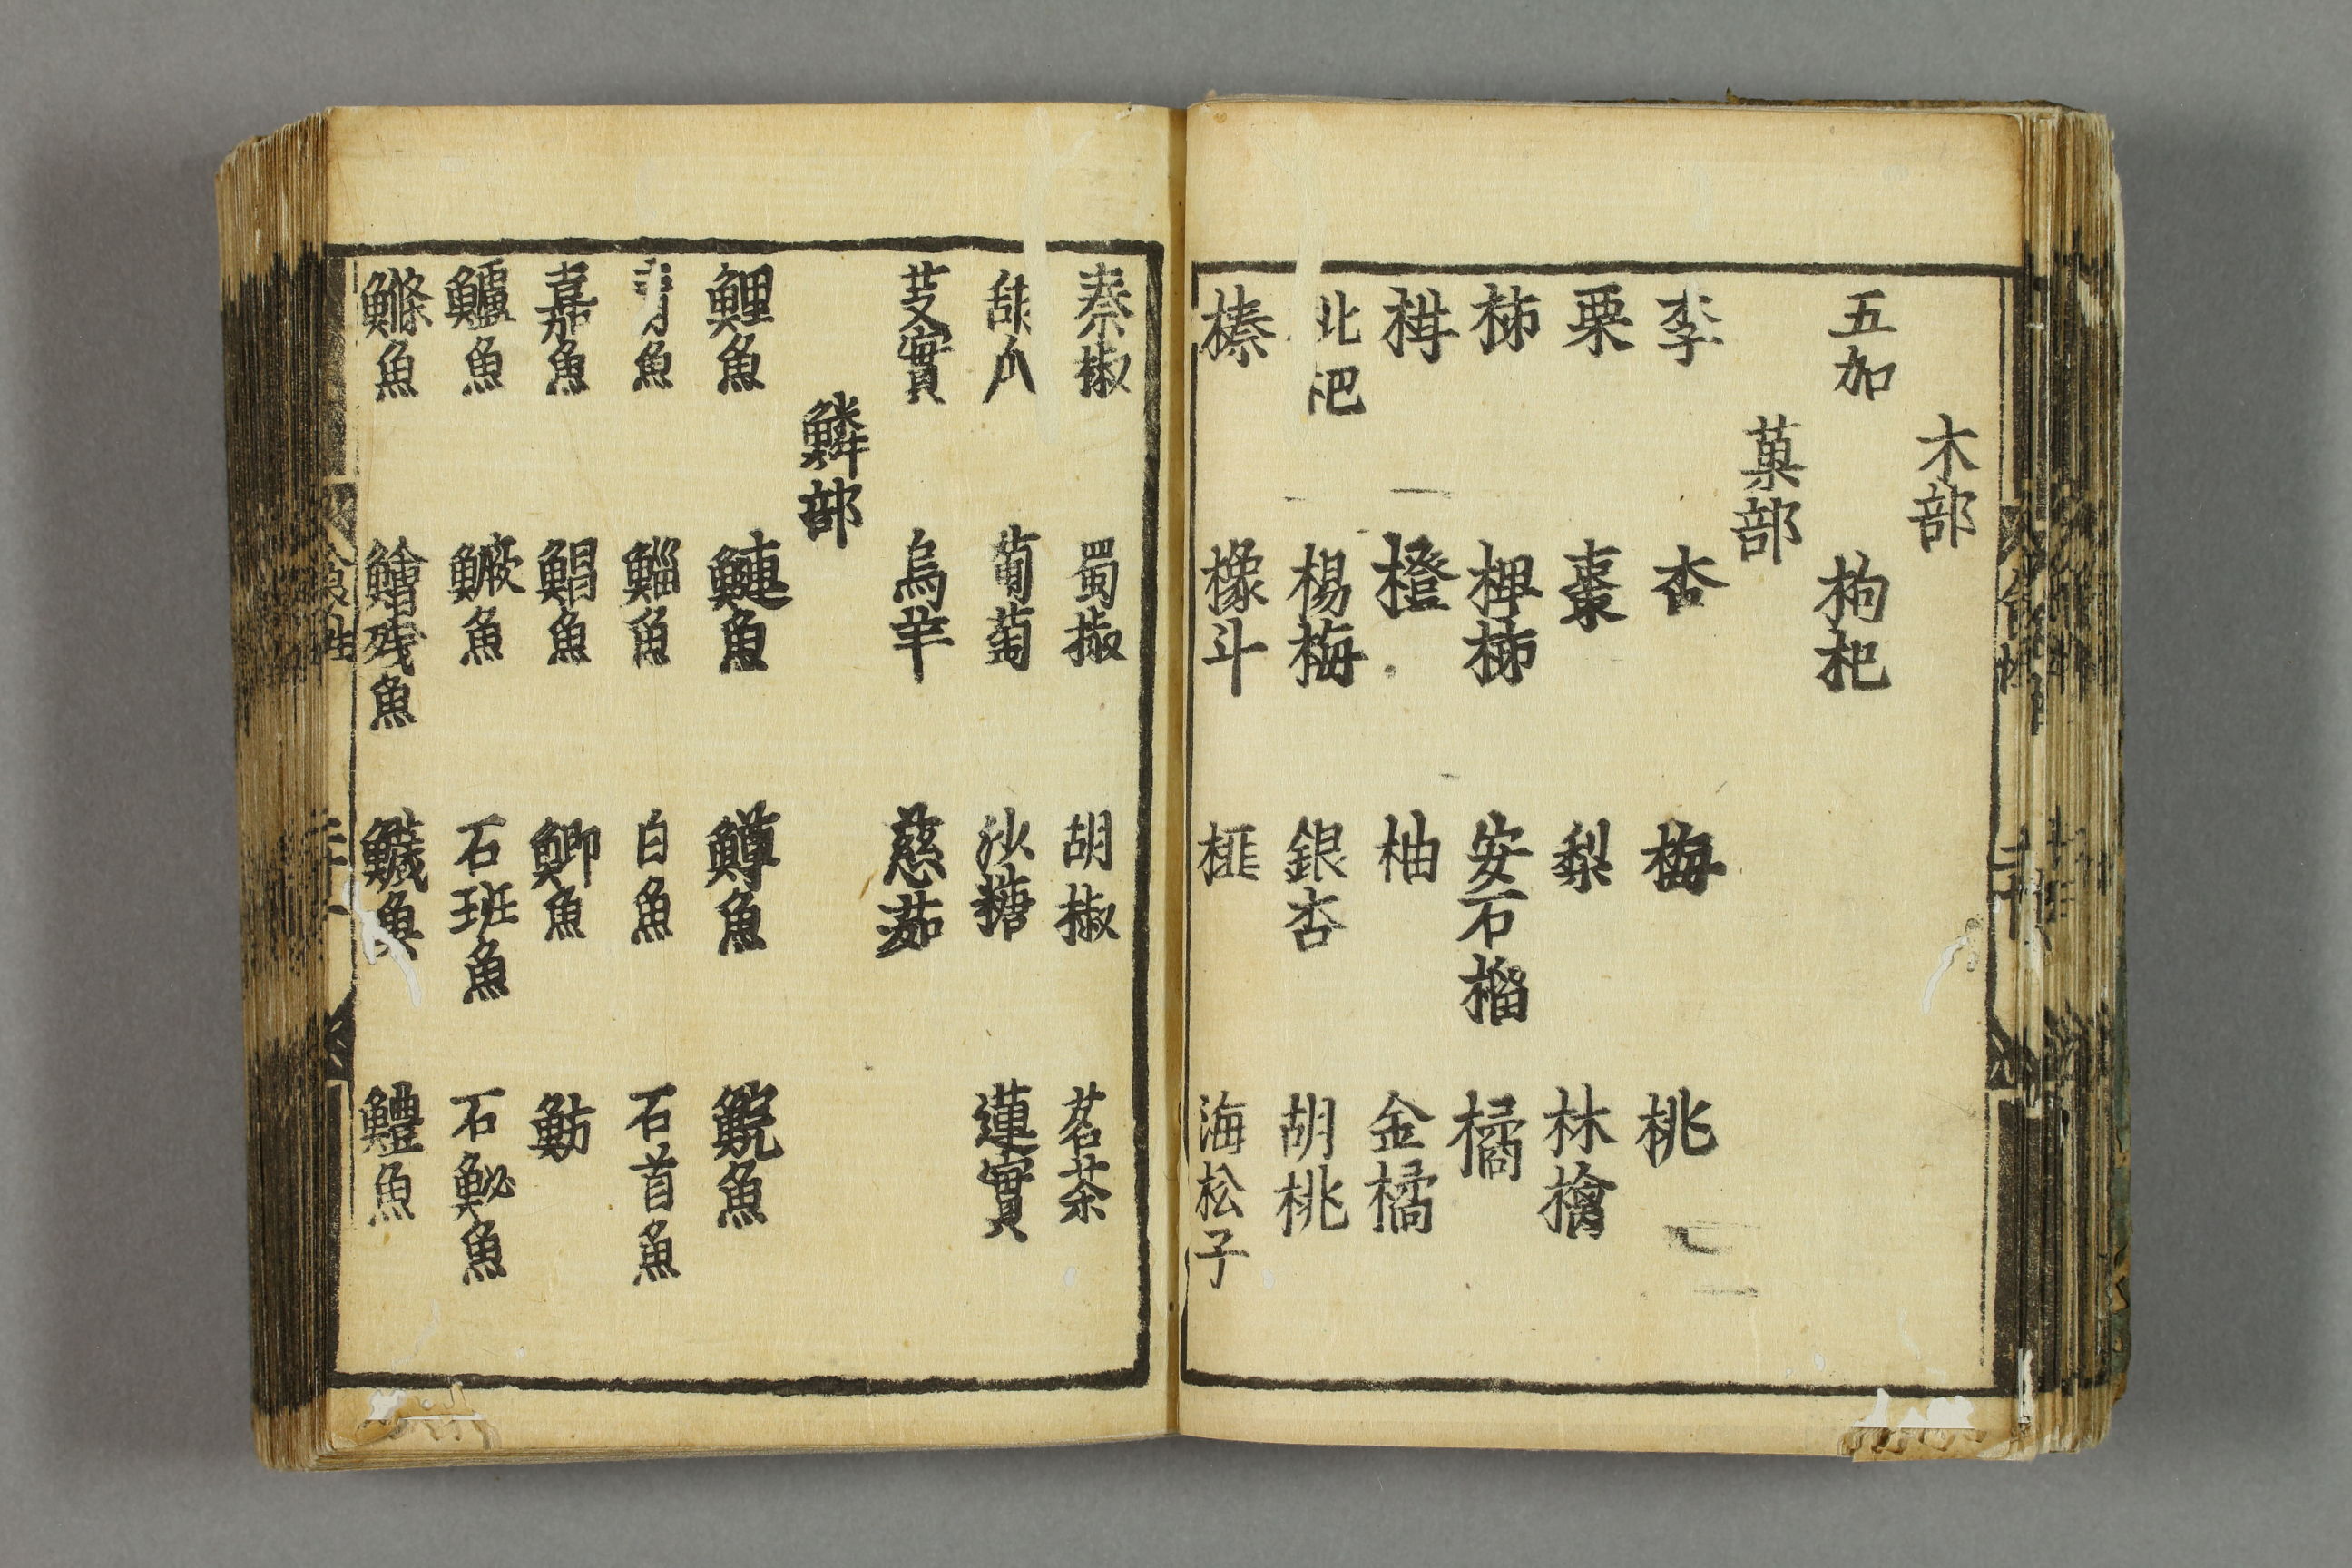 木部
五加 枸杞
菓部
李 杏 梅 桃
栗 棗 梨 林檎
柿 椑柿 安石榴 橘
柑 橙 柚 金橘
枇杷 楊梅 銀杏 胡桃
榛 橡斗 榧 海松子
秦椒 蜀椒 胡椒 茗茶
葡萄 沙糖 蓮實
芰實 烏芋 慈茹
鱗部
鯉魚 鰱魚 鱒魚 鯇魚
青魚 鯔魚 白魚 石首魚
嘉魚 鯧魚 鯽魚 魴
鱸魚 鱖魚 石斑魚 石鮅魚
鰷魚 鱠残魚 鱵魚 鱧魚